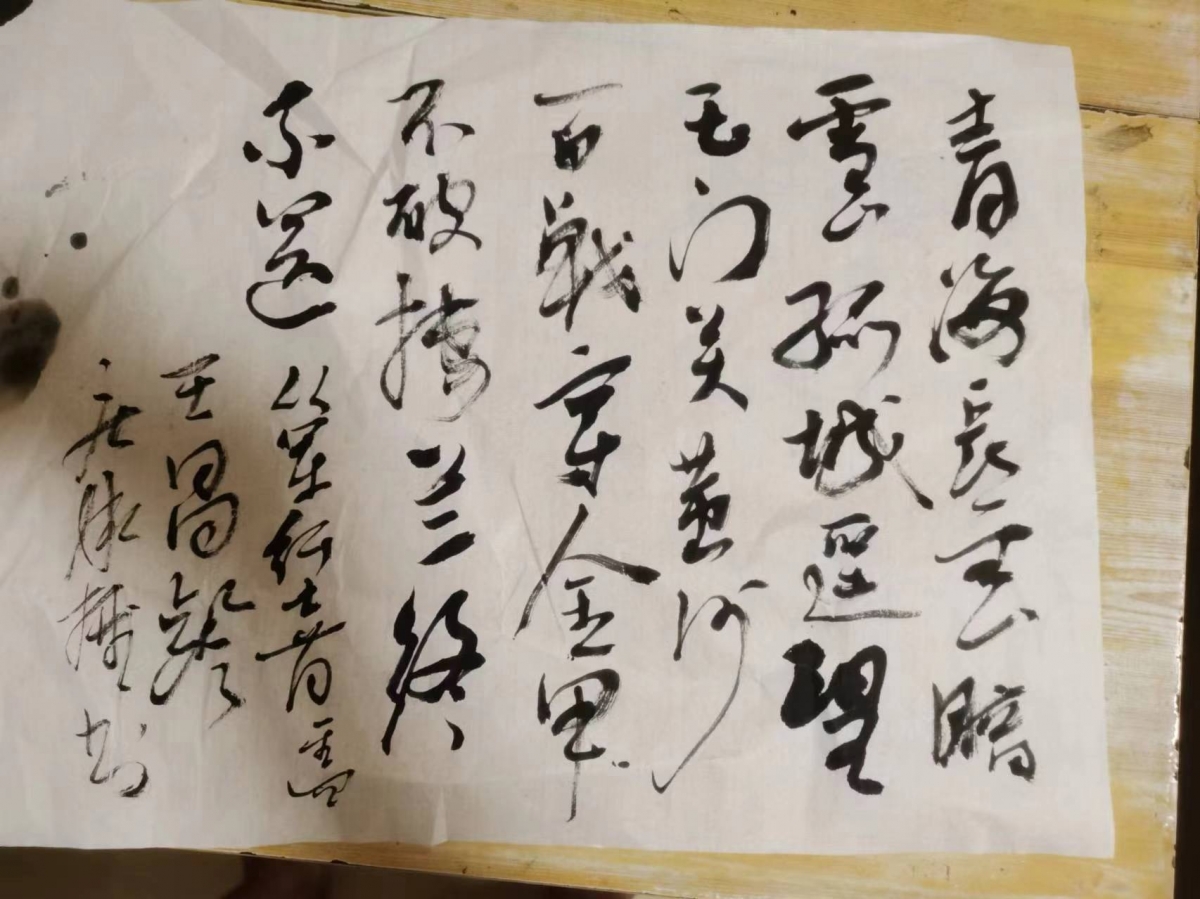 青海长云暗
雪山孤城遥望
玉门关黄沙
百战穿金甲
不破楼兰终
不还 从军行七首其四
王昌龄
书